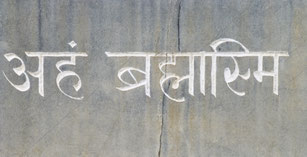 अहं ब्रह्मास्मि